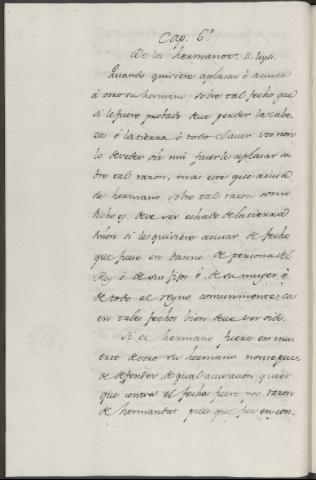 Cap. 6.º
De los hermanos. II. leyes.
Quando quisiere aplasar ó acusar
á otro su hermano sobre tal fecho que
si le fuere probado deve perder la cabe-
za ó la tierra é todo el aver vos non
lo devedes oir nin facerle aplasar so
bre tal razon, mas este que acusa
su hermano sobre tal razon como
dicho es, deve ser echado de la tierra
sinon si le quisiere acusar de fecho
que fuese en danno de persona del
Rey ó de sus fijos ó de su muger, ó
de todo el reyno comunmente, ca
en tales fechos bien deve ser oido.
Si el hermano fuere en mu-
erte de otro su hermano non se pue-
de defender de qual acusacion quier
que contra el fecha fuere por razon
de hermandat pues que fue en con-